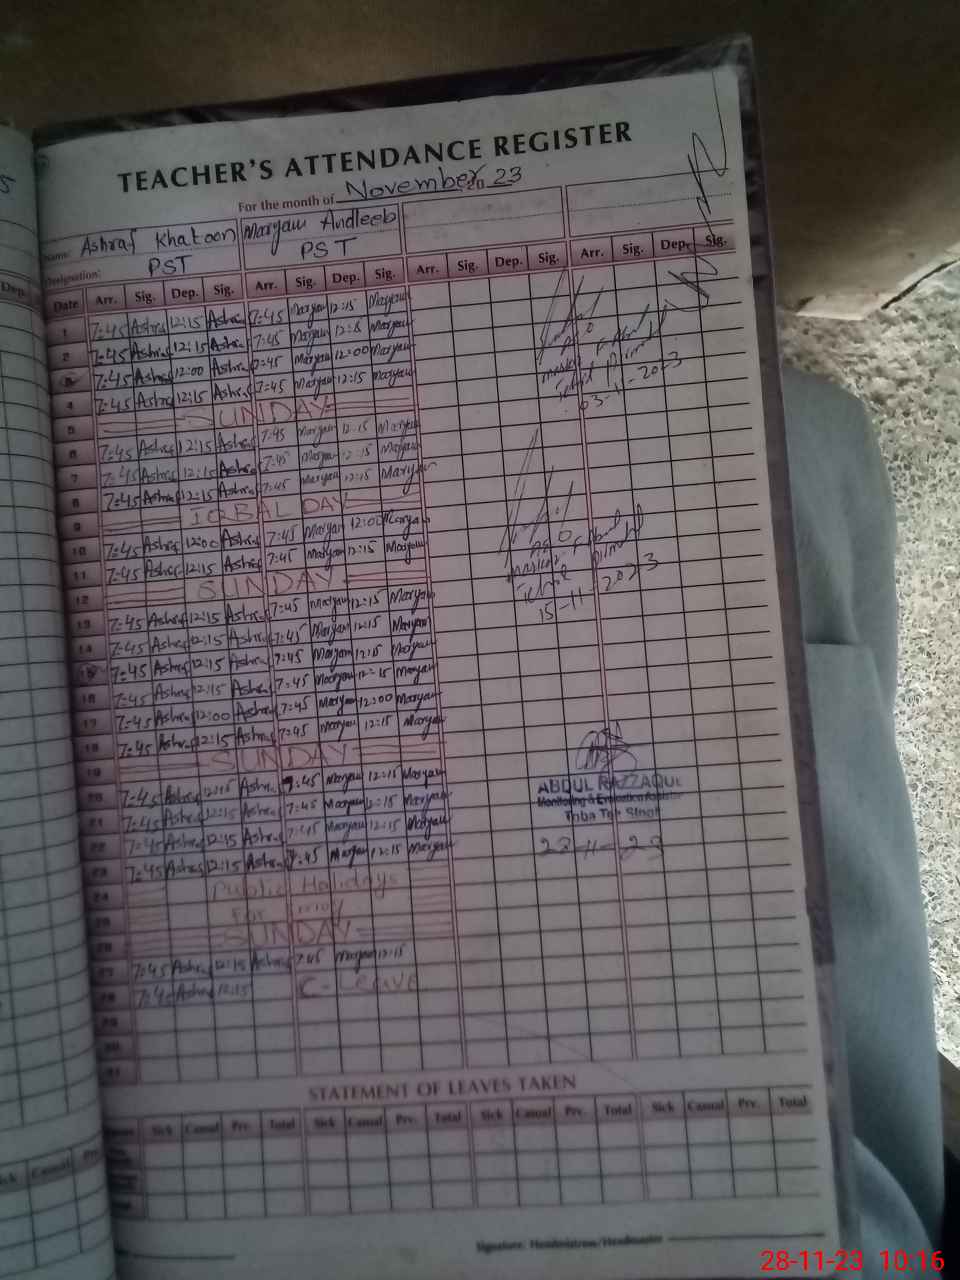 TEACHER'S ATTENDANCE REGISTER
For the month of November 2023
Name: Ashraf Khatoon Maryam Andleeb
Designation: PST PST
Date Arr. Sig. Dep. Sig. Arr. Sig. Dep. Sig. Arr. Sig. Dep. Sig. Arr. Sig. Dep. Sig.
1 7:45 Ashraf 12:15 Ashraf 7:45 Maryam 12:15 Maryam
2 7:45 Ashraf 12:15 Ashraf 7:45 Maryam Maryam
3 7:45 Ashraf 12:00 Ashraf 7:45 Maryam 12:00 Maryam
4 7:45 Ashraf 12:15 Ashraf 7:45 Maryam 12:15 Maryam
03-11-2023
5 SUNDAY
6 7:45 Ashraf 12:15 Ashraf 7:45 Maryam 12:15 Maryam
7 7:45 Ashraf 12:15 Ashraf 7:45 Maryam 12:15 Maryam
8 7:45 Ashraf 12:15 Ashraf 7:45 Maryam 12:15 Maryam
9 IQBAL DAY
10 7:45 Ashraf 12:00 Ashraf 7:45 Maryam 12:00 Maryam
11 7:45 Ashraf 12:15 Ashraf 7:45 Maryam 12:15 Maryam
15-11-2023
12 SUNDAY
13 7:45 Ashraf 12:15 Ashraf 7:45 Maryam 12:15 Maryam
14 7:45 Ashraf 12:15 Ashraf 7:45 Maryam 12:15 Maryam
15 7:45 Ashraf 12:15 Ashraf 7:45 Maryam 12:15 Maryam
16 7:45 Ashraf 12:15 Ashraf 7:45 Maryam 12:15 Maryam
17 7:45 Ashraf 12:00 Ashraf 7:45 Maryam 12:00 Maryam
18 7:45 Ashraf 12:15 Ashraf 7:45 Maryam 12:15 Maryam
19 SUNDAY
20 7:45 Ashraf 12:15 Ashraf 7:45 Maryam 12:15 Maryam
ABDUL RAZZAQUE
Monitoring & Evaluation
21 7:45 Ashraf 12:15 Ashraf 7:45 Maryam 12:15 Maryam
22 7:45 Ashraf 12:15 Ashraf 7:45 Maryam 12:15 Maryam
23-11-23
23 7:45 Ashraf 12:15 Ashraf 7:45 Maryam 12:15 Maryam
24 Public Holidays
25 For
26 SUNDAY
27 7:45 Ashraf 12:15 Ashraf 7:45 Maryam 12:15
28 7:45 Ashraf 12:15 C-Leave
29
30
31
STATEMENT OF LEAVES TAKEN
Sick Casual Prv. Total Sick Casual Prv. Total Sick Casual Prv. Total Sick Casual Prv. Total
Signature: Headmistress/Headmaster
28-11-23 10:16